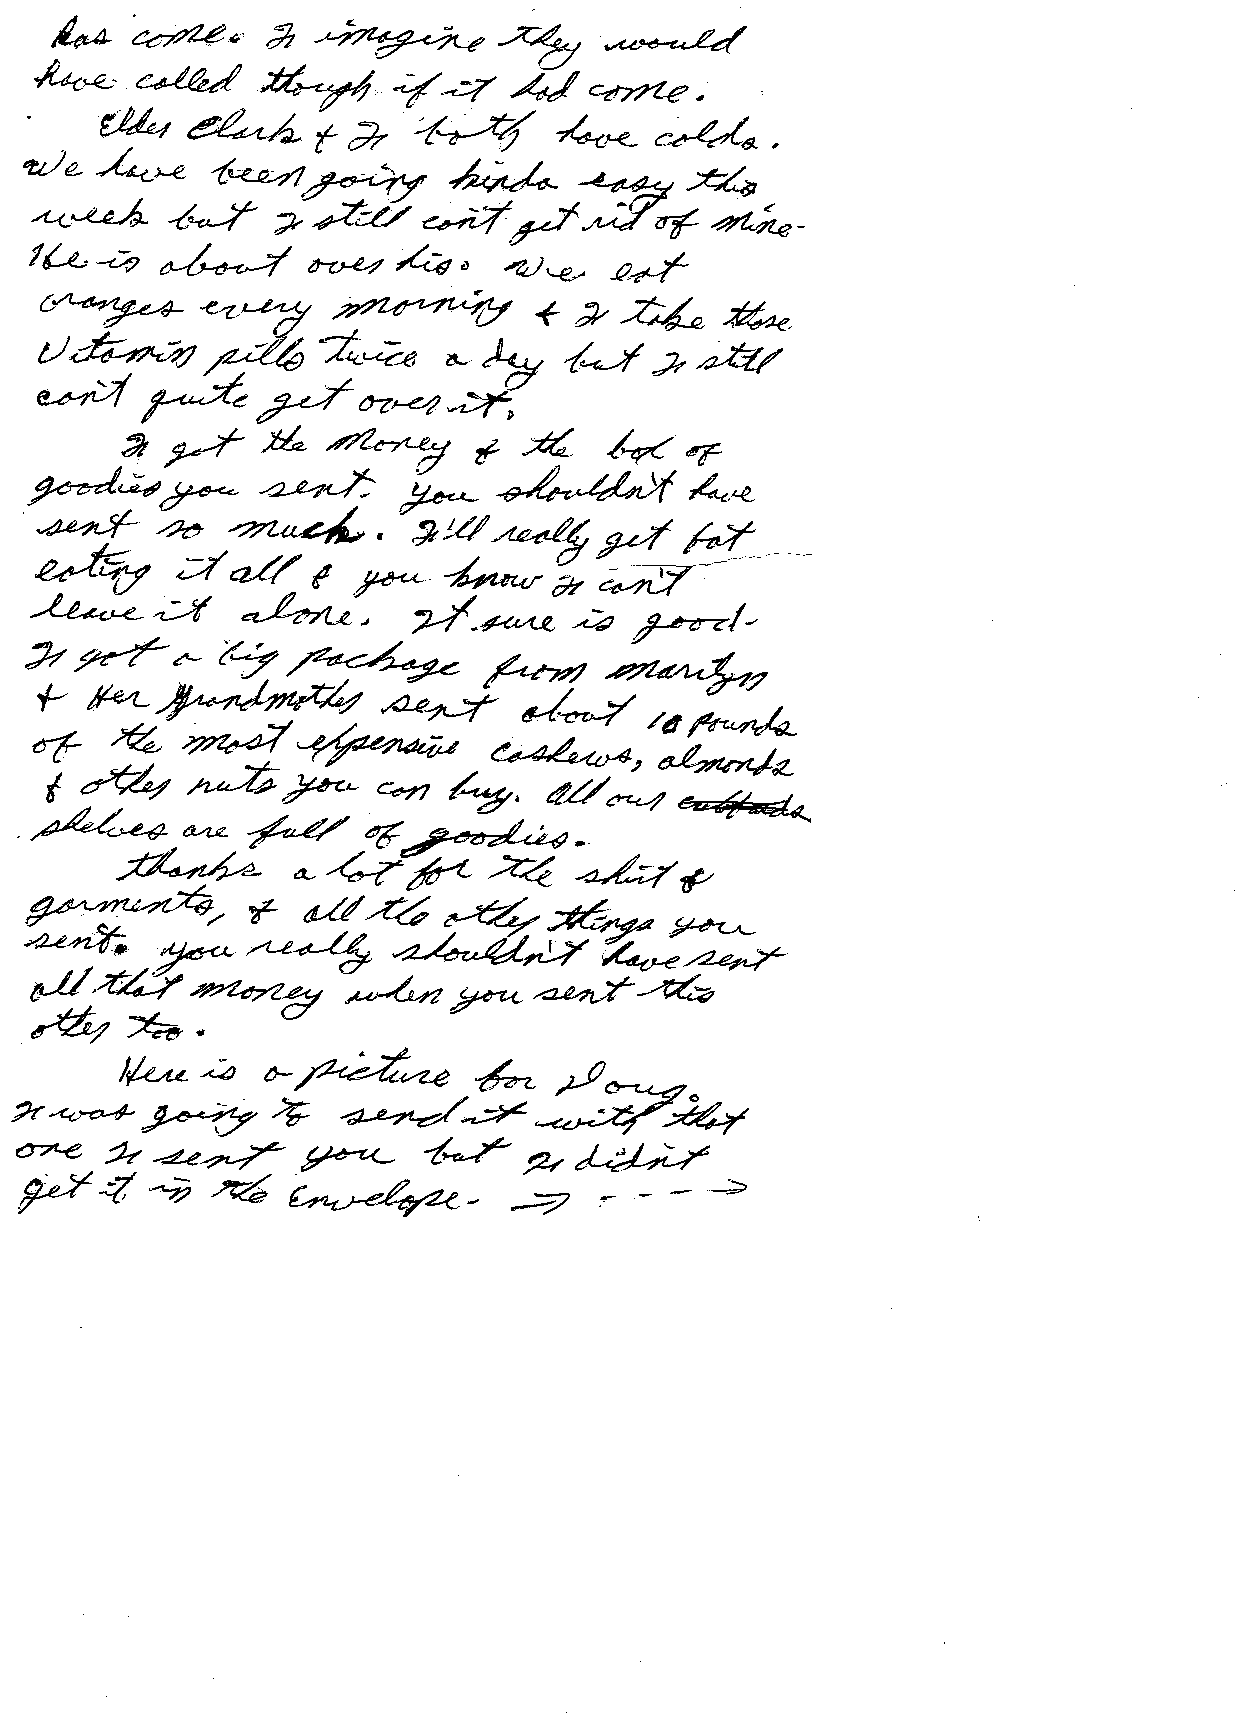 has come. I imagine they would
have called though if it had come.
Elder Clark & I both have colds.
We have been going kinda easy this
week but I still can't get rid of mine.
He is about over his. We eat
oranges every morning & I take those
Vitamin pills twice a day but I still
can't quite get over it.
I got the money & the box of
goodies you sent. You shouldn't have
sent so much. I'll really get fat
eating it all & you know I can't
leave it alone. It sure is good.
I got a big package from Marilyn
& Her Grandmother sent about 10 pounds
of the most expensive cashews, almonds
& other nuts you can buy. All our
shelves are full of goodies.
Thanks a lot for the shirt &
garments, & all the other things you
sent. You really shouldn't have sent
all that money when you sent this
other too.
Here is a picture for Doug.
I was going to send it with that
one I sent you but I didn't
get it in the Envelope. ⇒ - - - ->